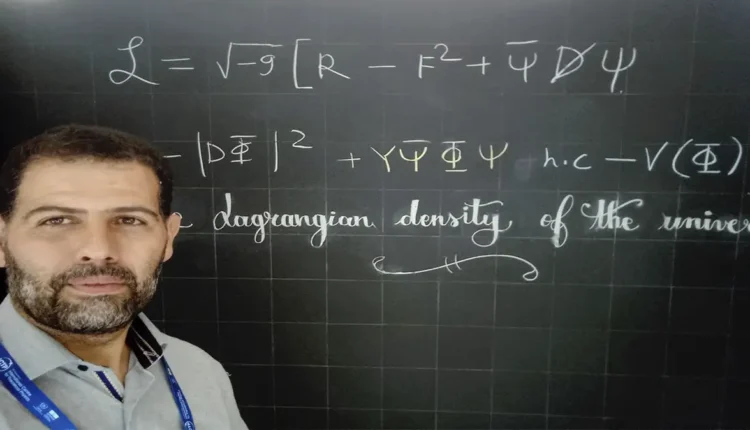 ℒ = √-g [ R - F² + Ψ̄ D̸ Ψ
- |DΦ|² + YΨ̄ΦΨ h.c - V(Φ)
Lagrangian density of the univer